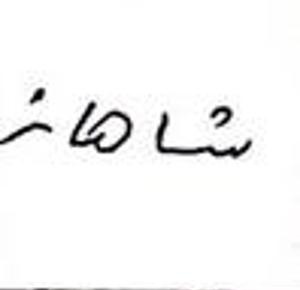 شاهان